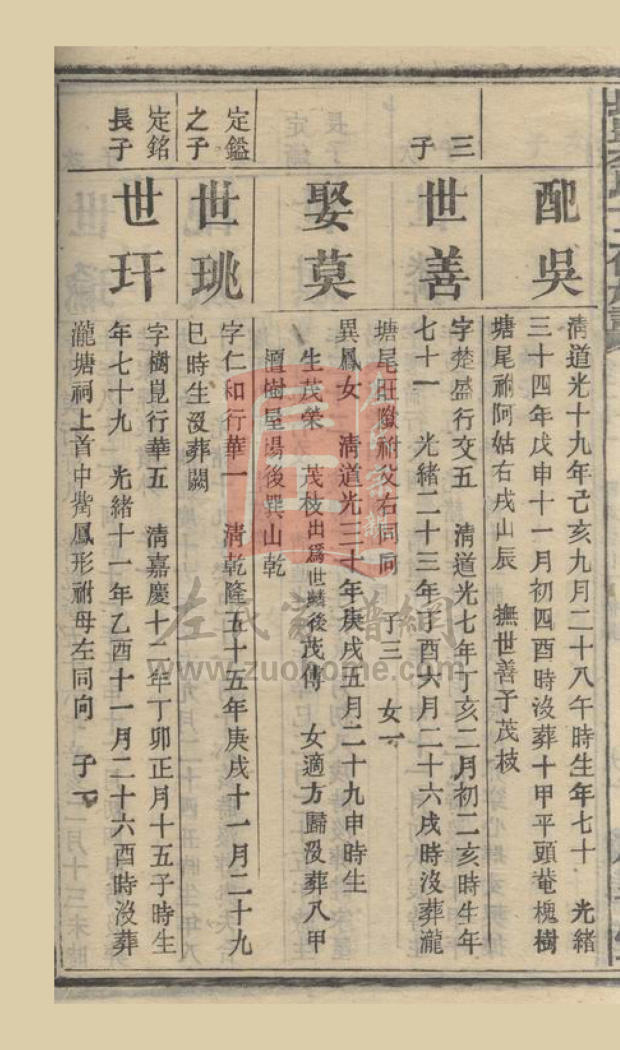 配吳
清道光十九年己亥九月二十八午時生年七十 光緒
三十四年戊申十一月初四酉時沒葬十甲平頭菴槐樹
塘尾祔阿姑右戌山辰 撫世善子茂枝
三子
世善
字楚盛行交五 清道光七年丁亥二月初二亥時生年
七十一 光緒二十三年丁酉六月二十六戌時沒葬瀧
塘尾旺 祔 右同向 子三 女一
娶莫
異鳳女 清道光三十年庚戌五月二十九申時生
生茂榮 茂枝出爲世 後茂傳 女適方歸沒葬八甲
樹屋場後巽山乾
定鎰之子
世珧
字仁和行華一 清乾隆五十五年庚戌十一月二十九
巳時生沒葬闕
定銘長子
世玕
字樹崑行華五 清嘉慶十二年丁卯正月十五子時生
年七十九 光緒十一年乙酉十一月二十六酉時沒葬
瀧塘祠上首中 鳳形祔母左同向 子一
左氏家譜網
www.zuohome.com